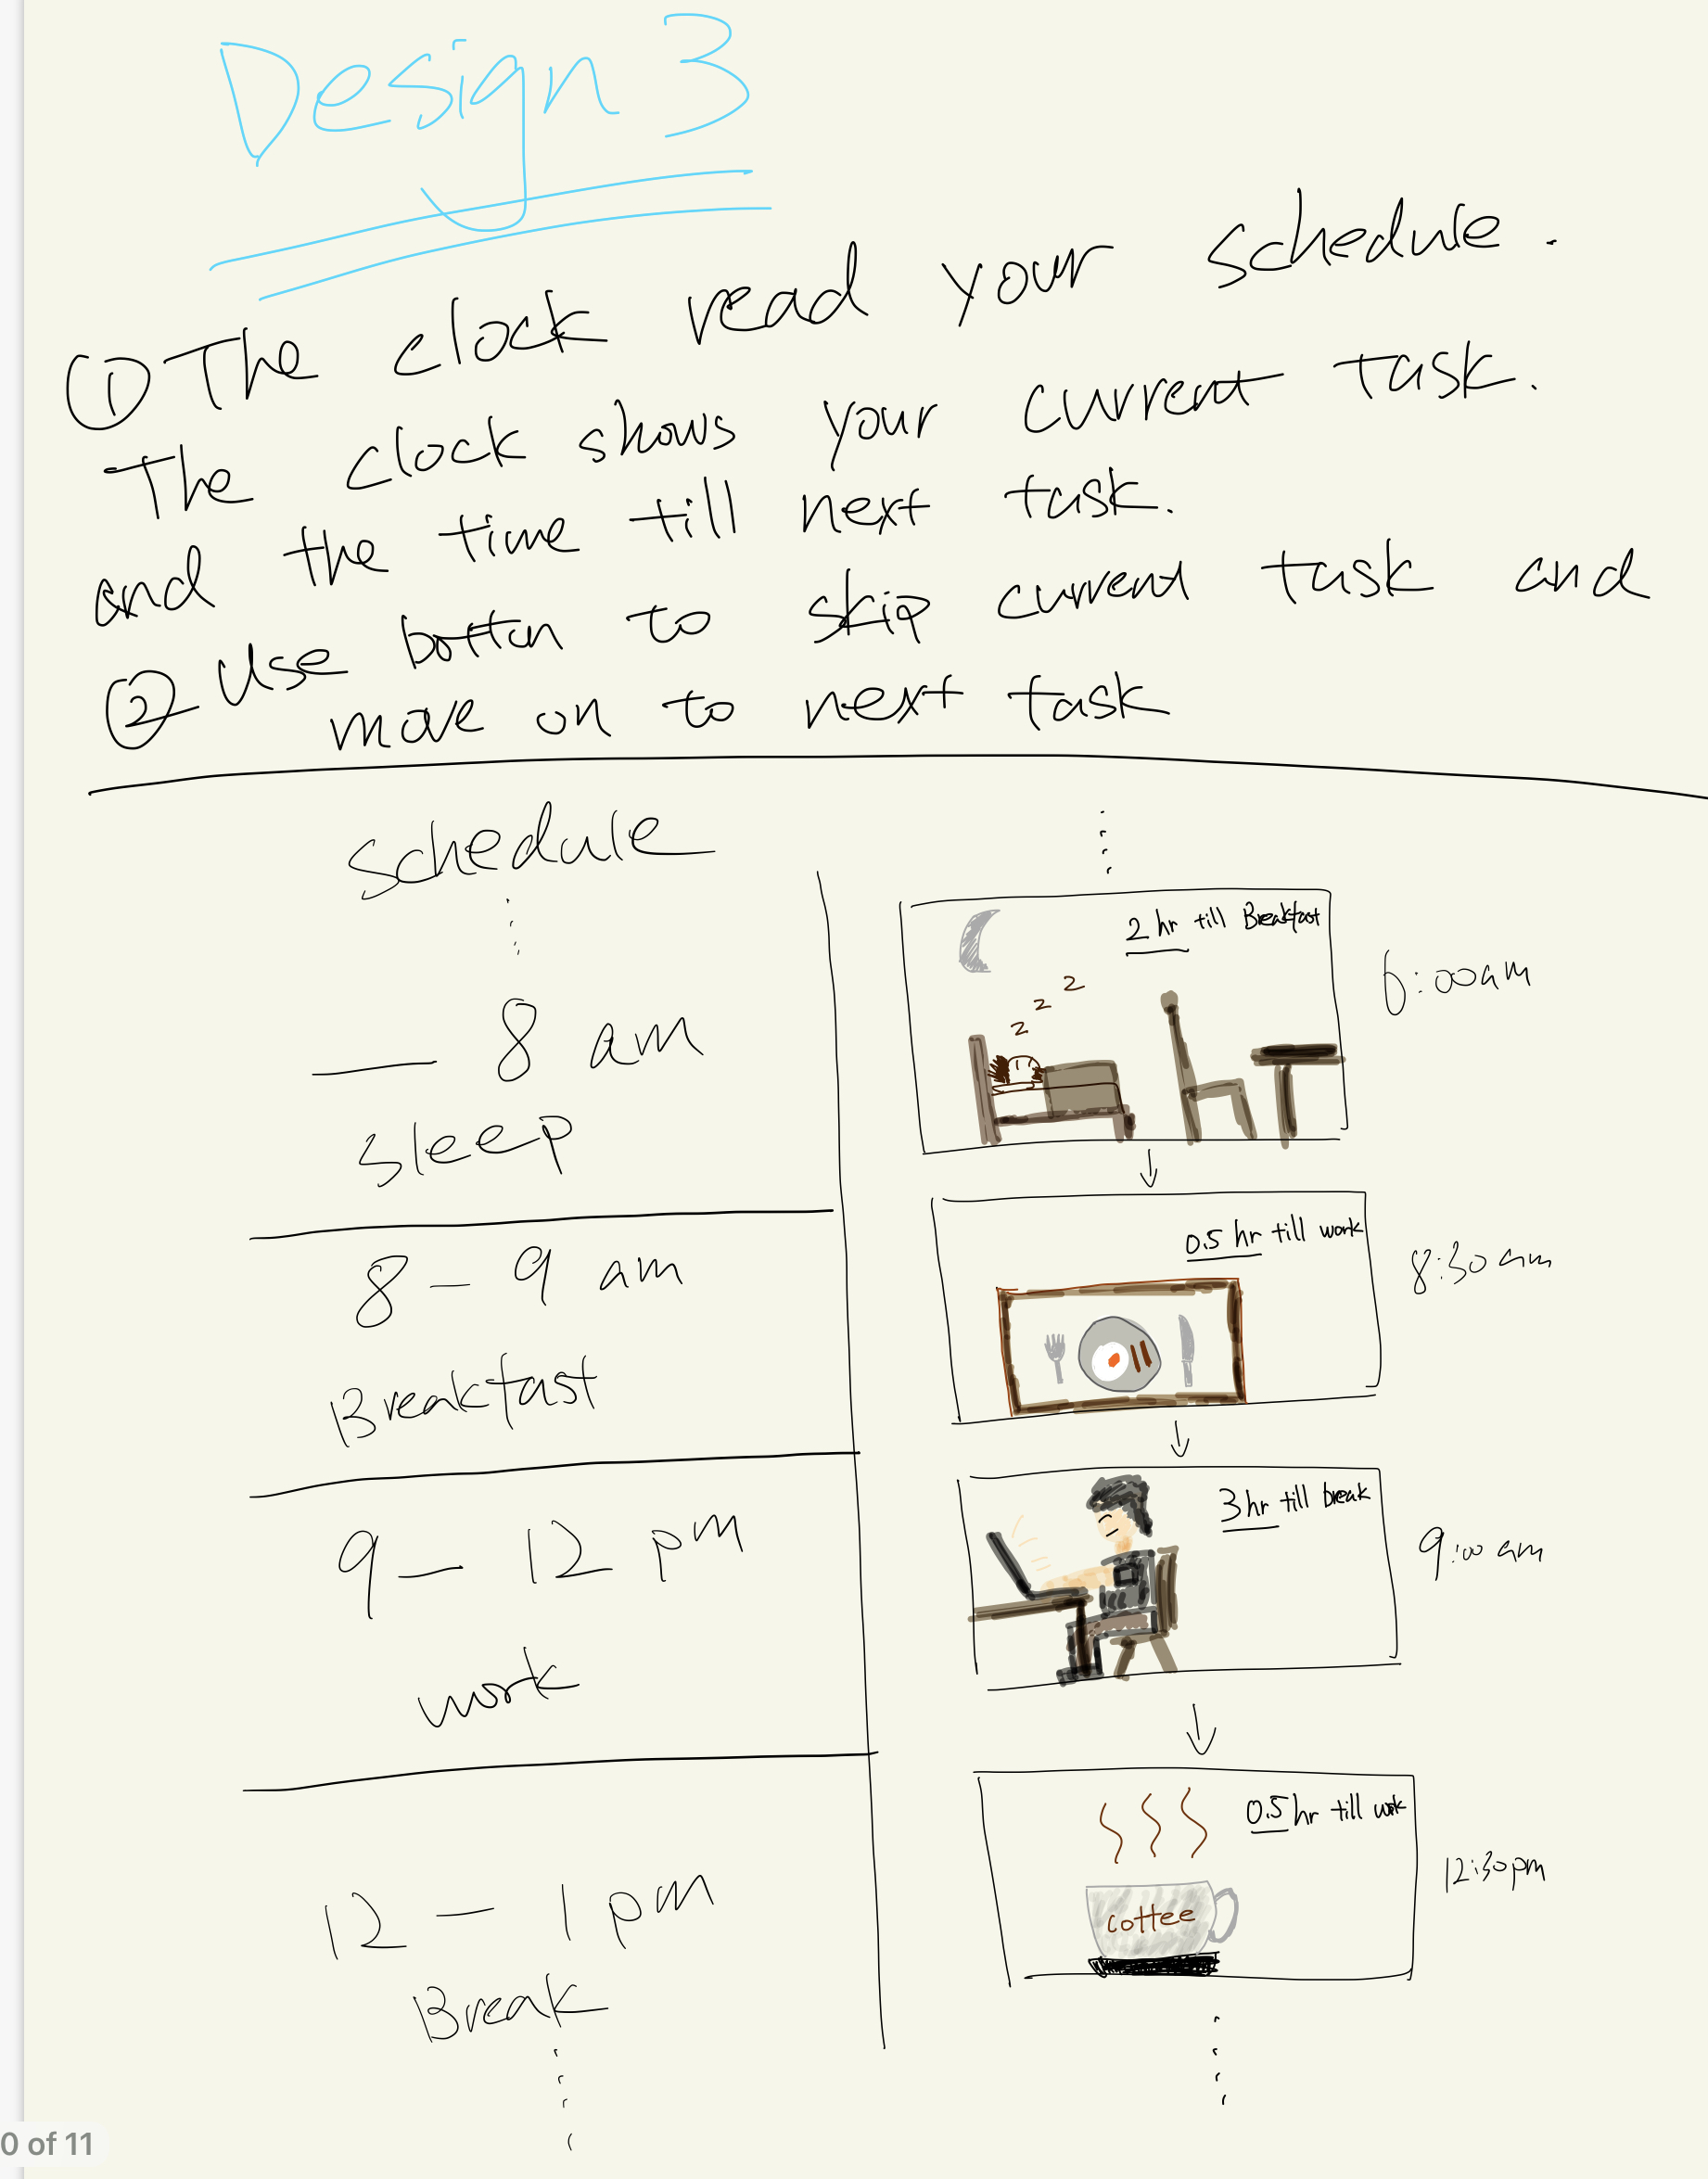 Design 3
① The clock read your schedule.
The clock shows your current task.
and the time till next task.
② Use botton to skip current task and
move on to next task
schedule
— 8 am
sleep
8 – 9 am
Breakfast
9 – 12 pm
work
12 – 1 pm
Break
2 hr till Breakfast
z z z
6:00am
0.5 hr till work
8:30 am
3 hr till break
9:00 am
0.5 hr till work
coffee
12:30pm
0 of 11